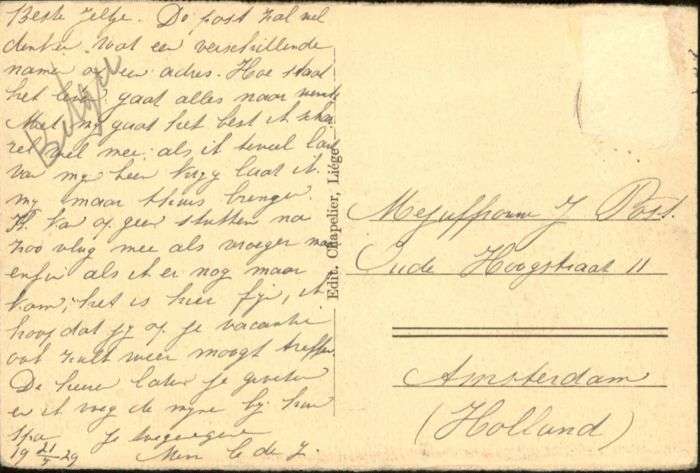 Beste Jeltje. De post zal wel
denken wat een verschillende
namen op een adres. Hoe staat
het leven gaat alles naar wensch
Met mij gaat het best ik
wel mee, als ik teveel
van mijn heer krijg laat ik
mij maar thuis brengen.
Ik kan op geen stukken na
zoo vlug mee als vroeger maar
enfin als ik er nog maar
kom, het is hier fijn, ik
hoop dat jij op je vacantie
ook zult weer moogt treffen
De heeren laten je groeten
en ik voeg de mijne bij hen
Spa
19 21/7 29
België
Edit. Chapelier, Liége
Mejuffrouw J Post.
Oude Hoogstraat 11
Amsterdam
(Holland)